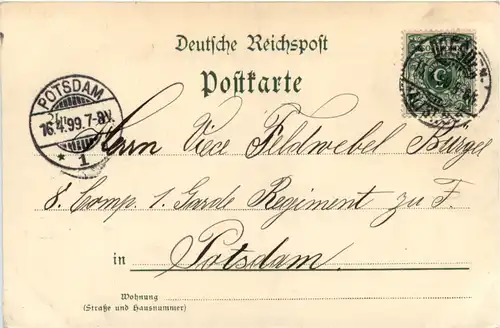 Deutsche Reichspost
Postkarte
POTSDAM
16.4.99.7-8V.
* 1
5
Herrn Vice Feldwebel Bürger
8. Comp. 1. Garde Regiment zu F.
in Potsdam.
Wohnung
(Straße und Hausnummer)